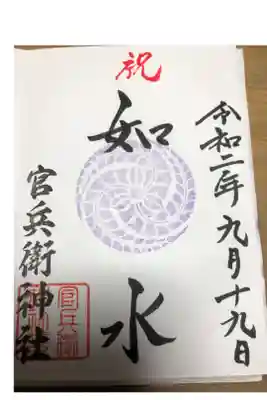 祝
令和二年九月十九日
如水
官兵衛神社
官兵衛